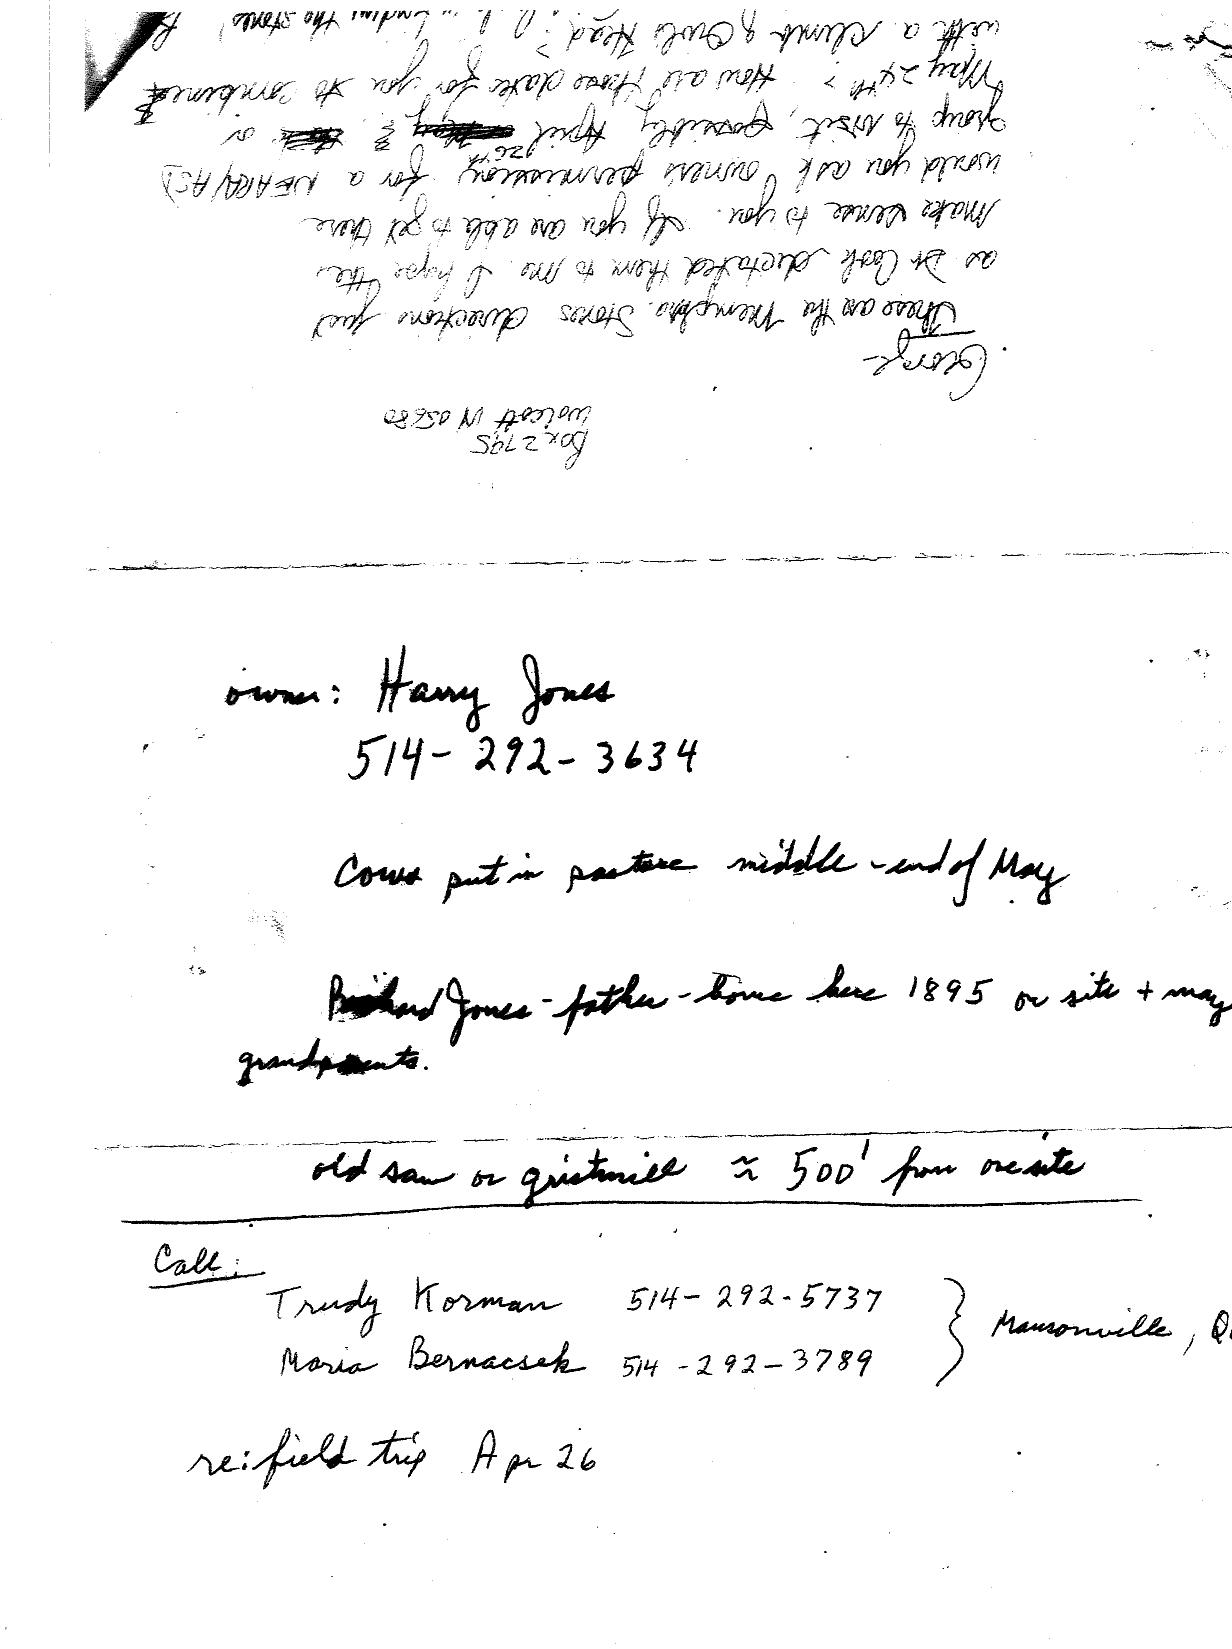 Box 2795
Wolcott Vt 05680
George
These are the Memphre. Stones directions just
as Dr Cook dictated them to me. I hope they
make sense to you. If you are able to get there
would you ask owners permission for a NEARA/ASJ
group to visit, possibly April 26th or
May 24th? How are those dates for you to combine
with a climb of Owls Head?
owner: Harry Jones
514-292-3634
Cows put in pasture middle - end of May
Richard Jones - father - home here 1895 on site + may
grandparents.
old saw or gristmill ≈ 500' from one site
Call:
Trudy Korman 514-292-5737
Maria Bernacsek 514-292-3789
Mansonville,
re: field trip Apr 26